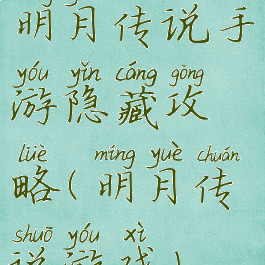 明月传说手
yóu yǐn cáng gòng
游隐藏攻
lüè míng yuè chuán
略(明月传
shuō yóu xì
说游戏)